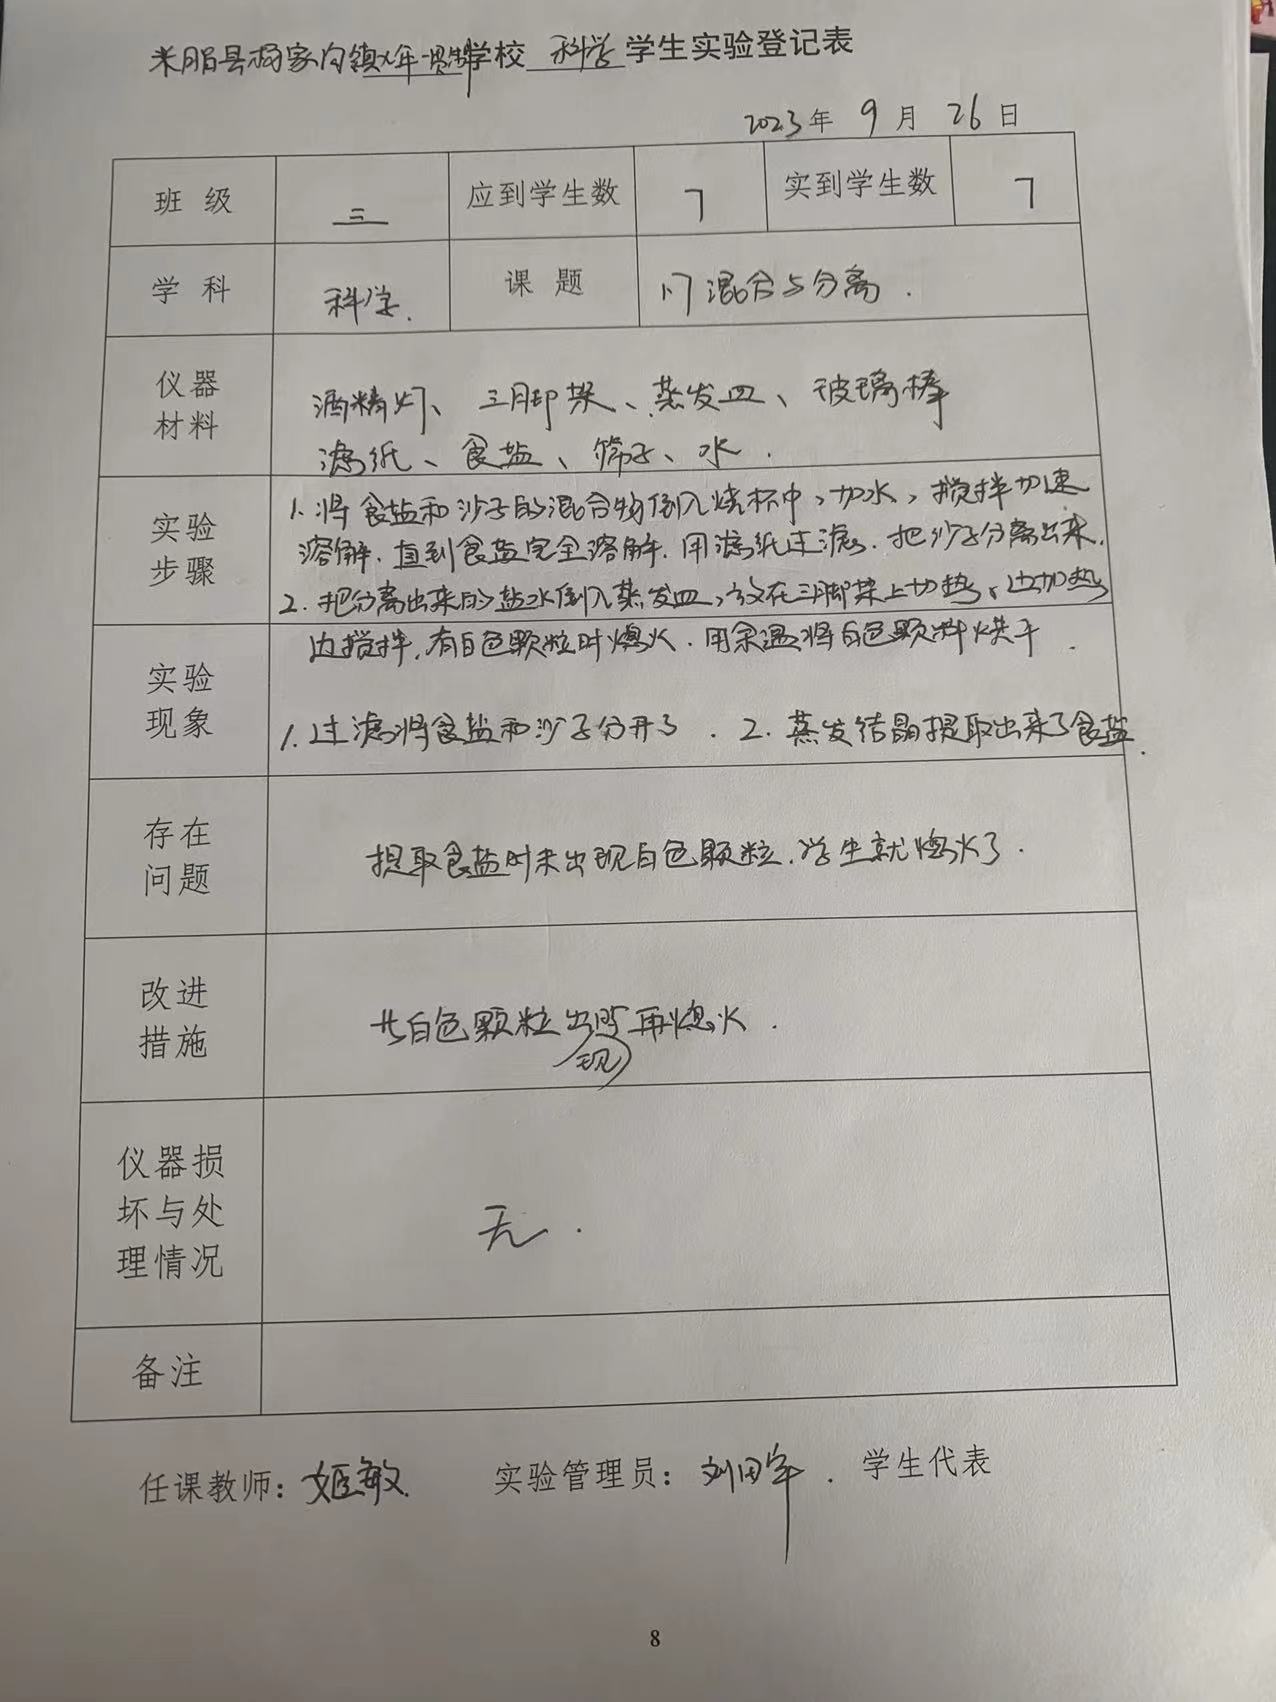 米脂县杨家沟镇九年一贯制学校 科学 学生实验登记表
2023年 9月 26日
班级 三 应到学生数 7 实到学生数 7
学科 科学. 课题 17混合与分离.
仪器材料 酒精灯、三脚架、蒸发皿、玻璃棒
滤纸、食盐、筛子、水.
实验步骤 1.将食盐和沙子的混合物倒入烧杯中,加水,搅拌加速
溶解.直到食盐完全溶解.用滤纸过滤.把沙子分离出来.
2.把分离出来的盐水倒入蒸发皿,放在三脚架上加热,边加热
边搅拌,有白色颗粒时熄火.用余温将白色颗料烘干.
实验现象 1.过滤将食盐和沙子分开了.2.蒸发结晶提取出来了食盐.
存在问题 提取食盐时未出现白色颗粒.学生就熄火了.
改进措施 白色颗粒出现时再熄火.
仪器损坏与处理情况 无.
备注
任课教师:姬敏 实验管理员:刘田军. 学生代表
8